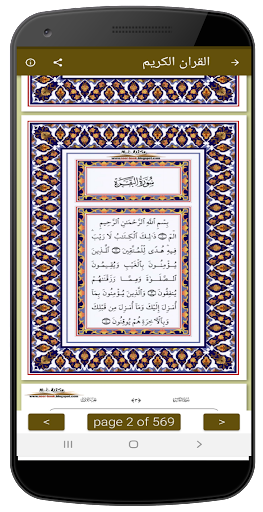 القران الكريم
سُورَةُ البَقَرَةِ
بِسْمِ اللَّهِ الرَّحْمَٰنِ الرَّحِيمِ
الٓمٓ ۝ ذَٰلِكَ الْكِتَٰبُ لَا رَيْبَ
فِيهِ هُدًى لِّلْمُتَّقِينَ ۝ الَّذِينَ
يُؤْمِنُونَ بِالْغَيْبِ وَيُقِيمُونَ
الصَّلَوٰةَ وَمِمَّا رَزَقْنَٰهُمْ
يُنفِقُونَ ۝ وَالَّذِينَ يُؤْمِنُونَ بِمَا
أُنزِلَ إِلَيْكَ وَمَا أُنزِلَ مِن قَبْلِكَ
وَبِالْآخِرَةِ هُمْ يُوقِنُونَ ۝
< page 2 of 569 >